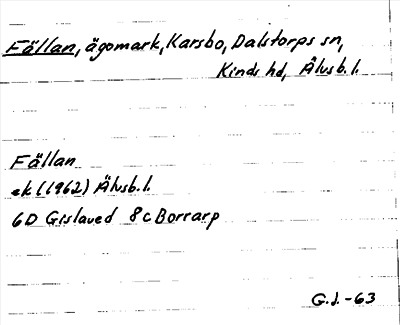 Fällan, ägomark, Karsbo, Dalstorps sn,
Kinds hd, Älvsb. l.
Fällan
ek (1962) Älvsb. l.
6D Gislaved 8c Borrarp
G.J.-63